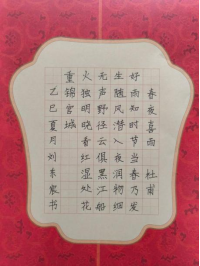 春夜喜雨 杜甫
好雨知时节当春乃发
生随风潜入夜润物细
无声野径云俱黑江船
火独明晓看红湿处花
重锦宫城
乙巳夏月刘家书